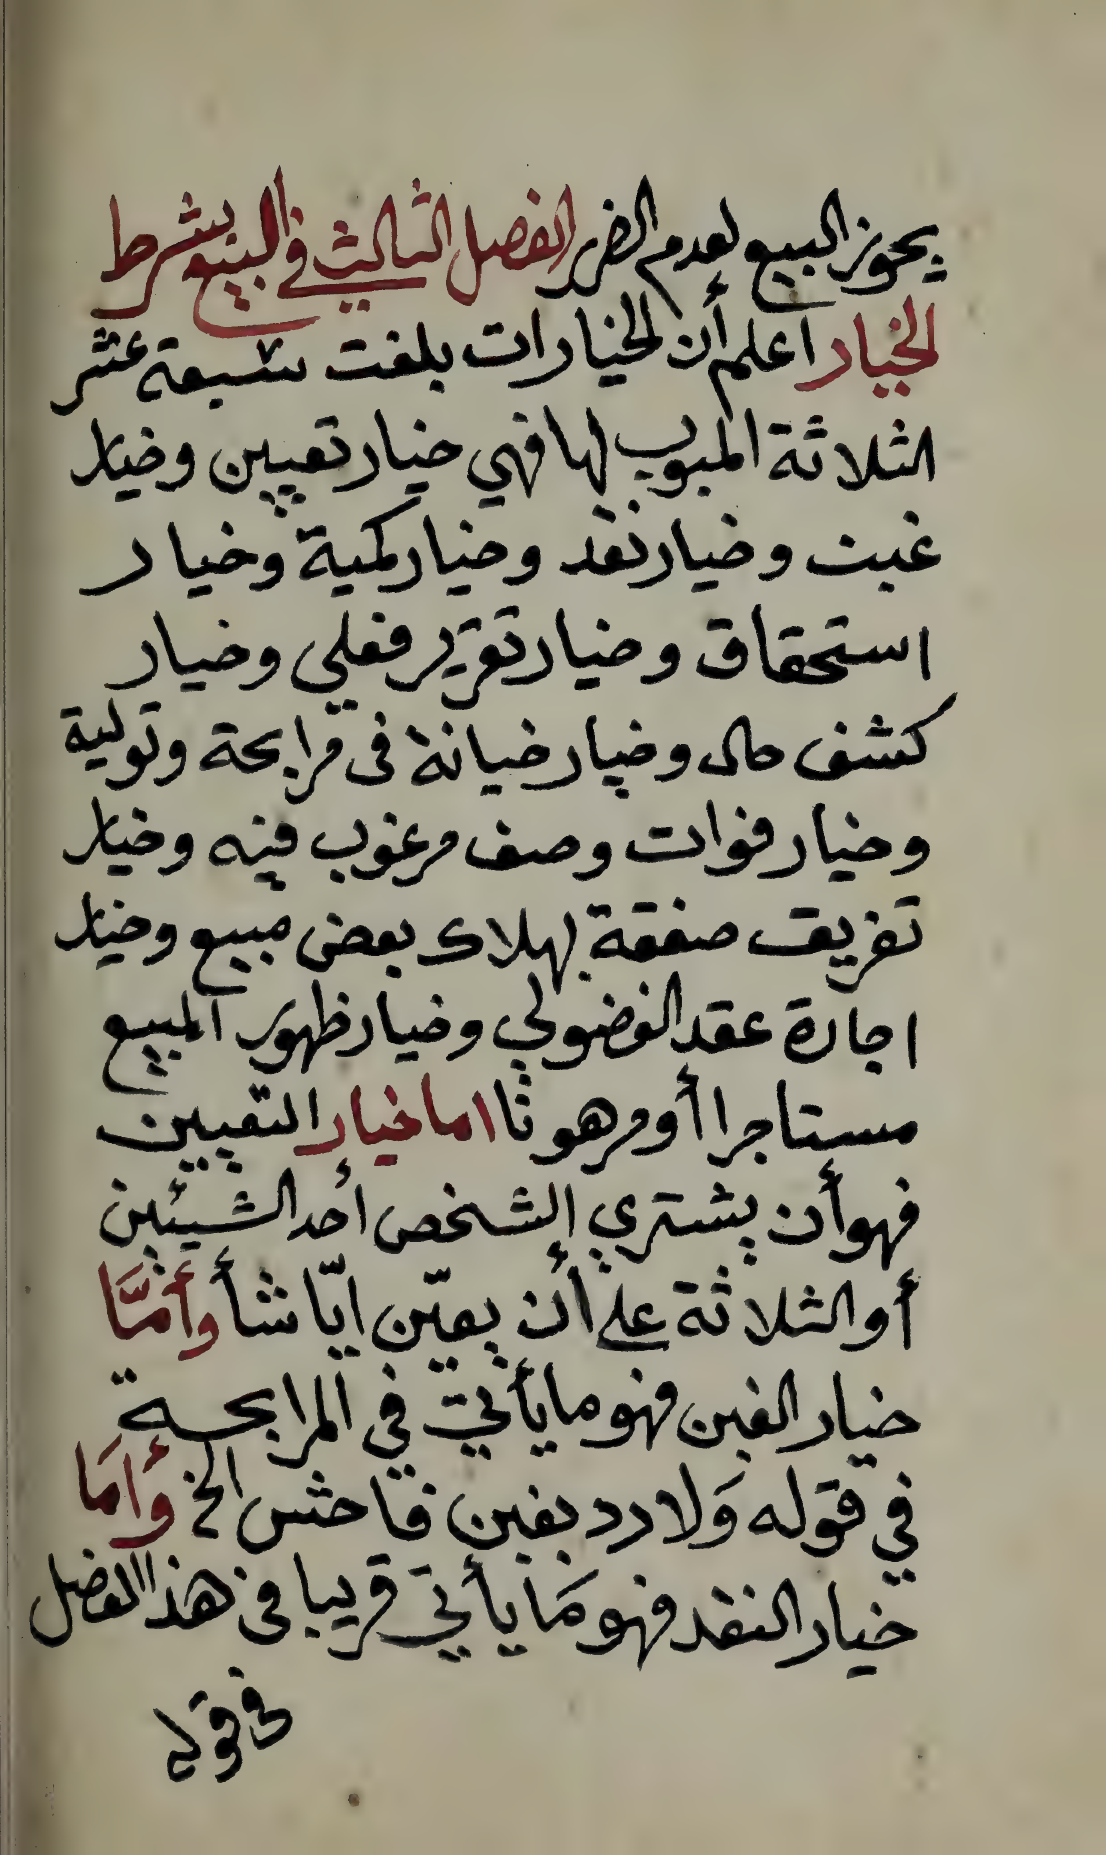 يجوز البيع لعدم الضرر الفصل الثالث في البيع بشرط
الخيار اعلم أن الخيارات بلغت سبعة عشر
الثلاثة المبوب لها فهي خيار تعيين وخيار
غبن وخيار نقد وخيار كمية وخيار
استحقاق وخيار تغرير فعلي وخيار
كشف حال وخيار خيانة في مرابحة وتولية
وخيار فوات وصف مرغوب فيه وخيار
تفريق صفقة بهلاك بعض مبيع وخيار
اجازة عقد الفضولي وخيار ظهور المبيع
مستاجرا أو مرهونا اما خيار التعيين
فهو أن يشتري الشخص أحد الشيئين
أو الثلاثة على أن يعيّن ايّا شأ وأمَّا
خيار الغبن فهو ما يأتي في المرابحة
في قوله وَلا رد بغبن فاحش الخ وأمَا
خيار النقد فهو مَا يأتي قريبا في هذا الفصل
في قوله